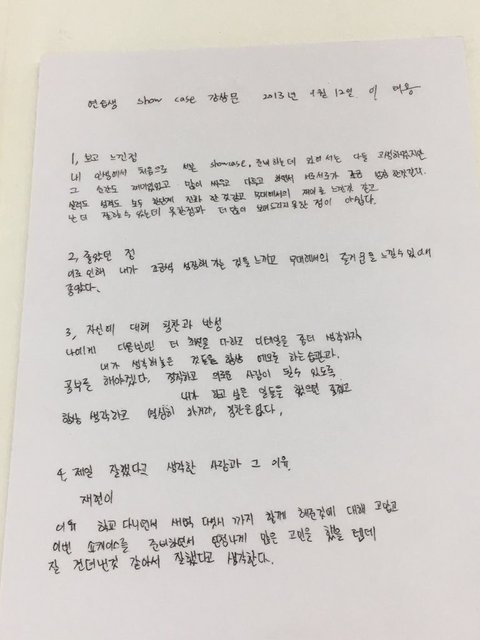 연습생 show case 감상문 2013년 9월 12일 이 태용
1, 보고 느낀점
내 인생에서 처음으로 서본 showcase, 준비하는데 있어서는 다들 고생하였지만
그 순간도 재미있었고 많이 싸우고 다투고 하면서 서로서로가 조금 성장한것같다.
실력도 성격도 모두 한단계 진화 한것같고 무대에서의 재미도 느낀것 같고
난 더 잘할수 있었는데 못한점과 더 많이 보여드리지 못한 점이 아쉽다.
2, 좋았던 점
이로 인해 내가 조금씩 성장해 가는 것을 느끼고 무대에서의 즐거움을 느낄수 있어서
좋았다.
3, 자신에 대해 칭찬과 반성
나에게 다음번엔 더 최선을 다하고 디테일을 좀더 생각하자,
내가 생각해놓은 것들을 항상 메모로 하는 습관과,
공부를 해야겠다, 정직하고 의로운 사람이 될수 있도록
내가 하고 싶은 일들을 했으면 좋겠고
항상 생각하고 열심히 하거라, 칭찬은 없다,
4, 제일 잘했다고 생각한 사람과 그 이유
재현이
이유 학교 다니면서 새벽 다섯시 까지 함께 해준것에 대해 고맙고
이번 쇼케이스를 준비하면서 연정나게 많은 고민을 했을 텐데
잘 견뎌낸것 같아서 잘했다고 생각한다.